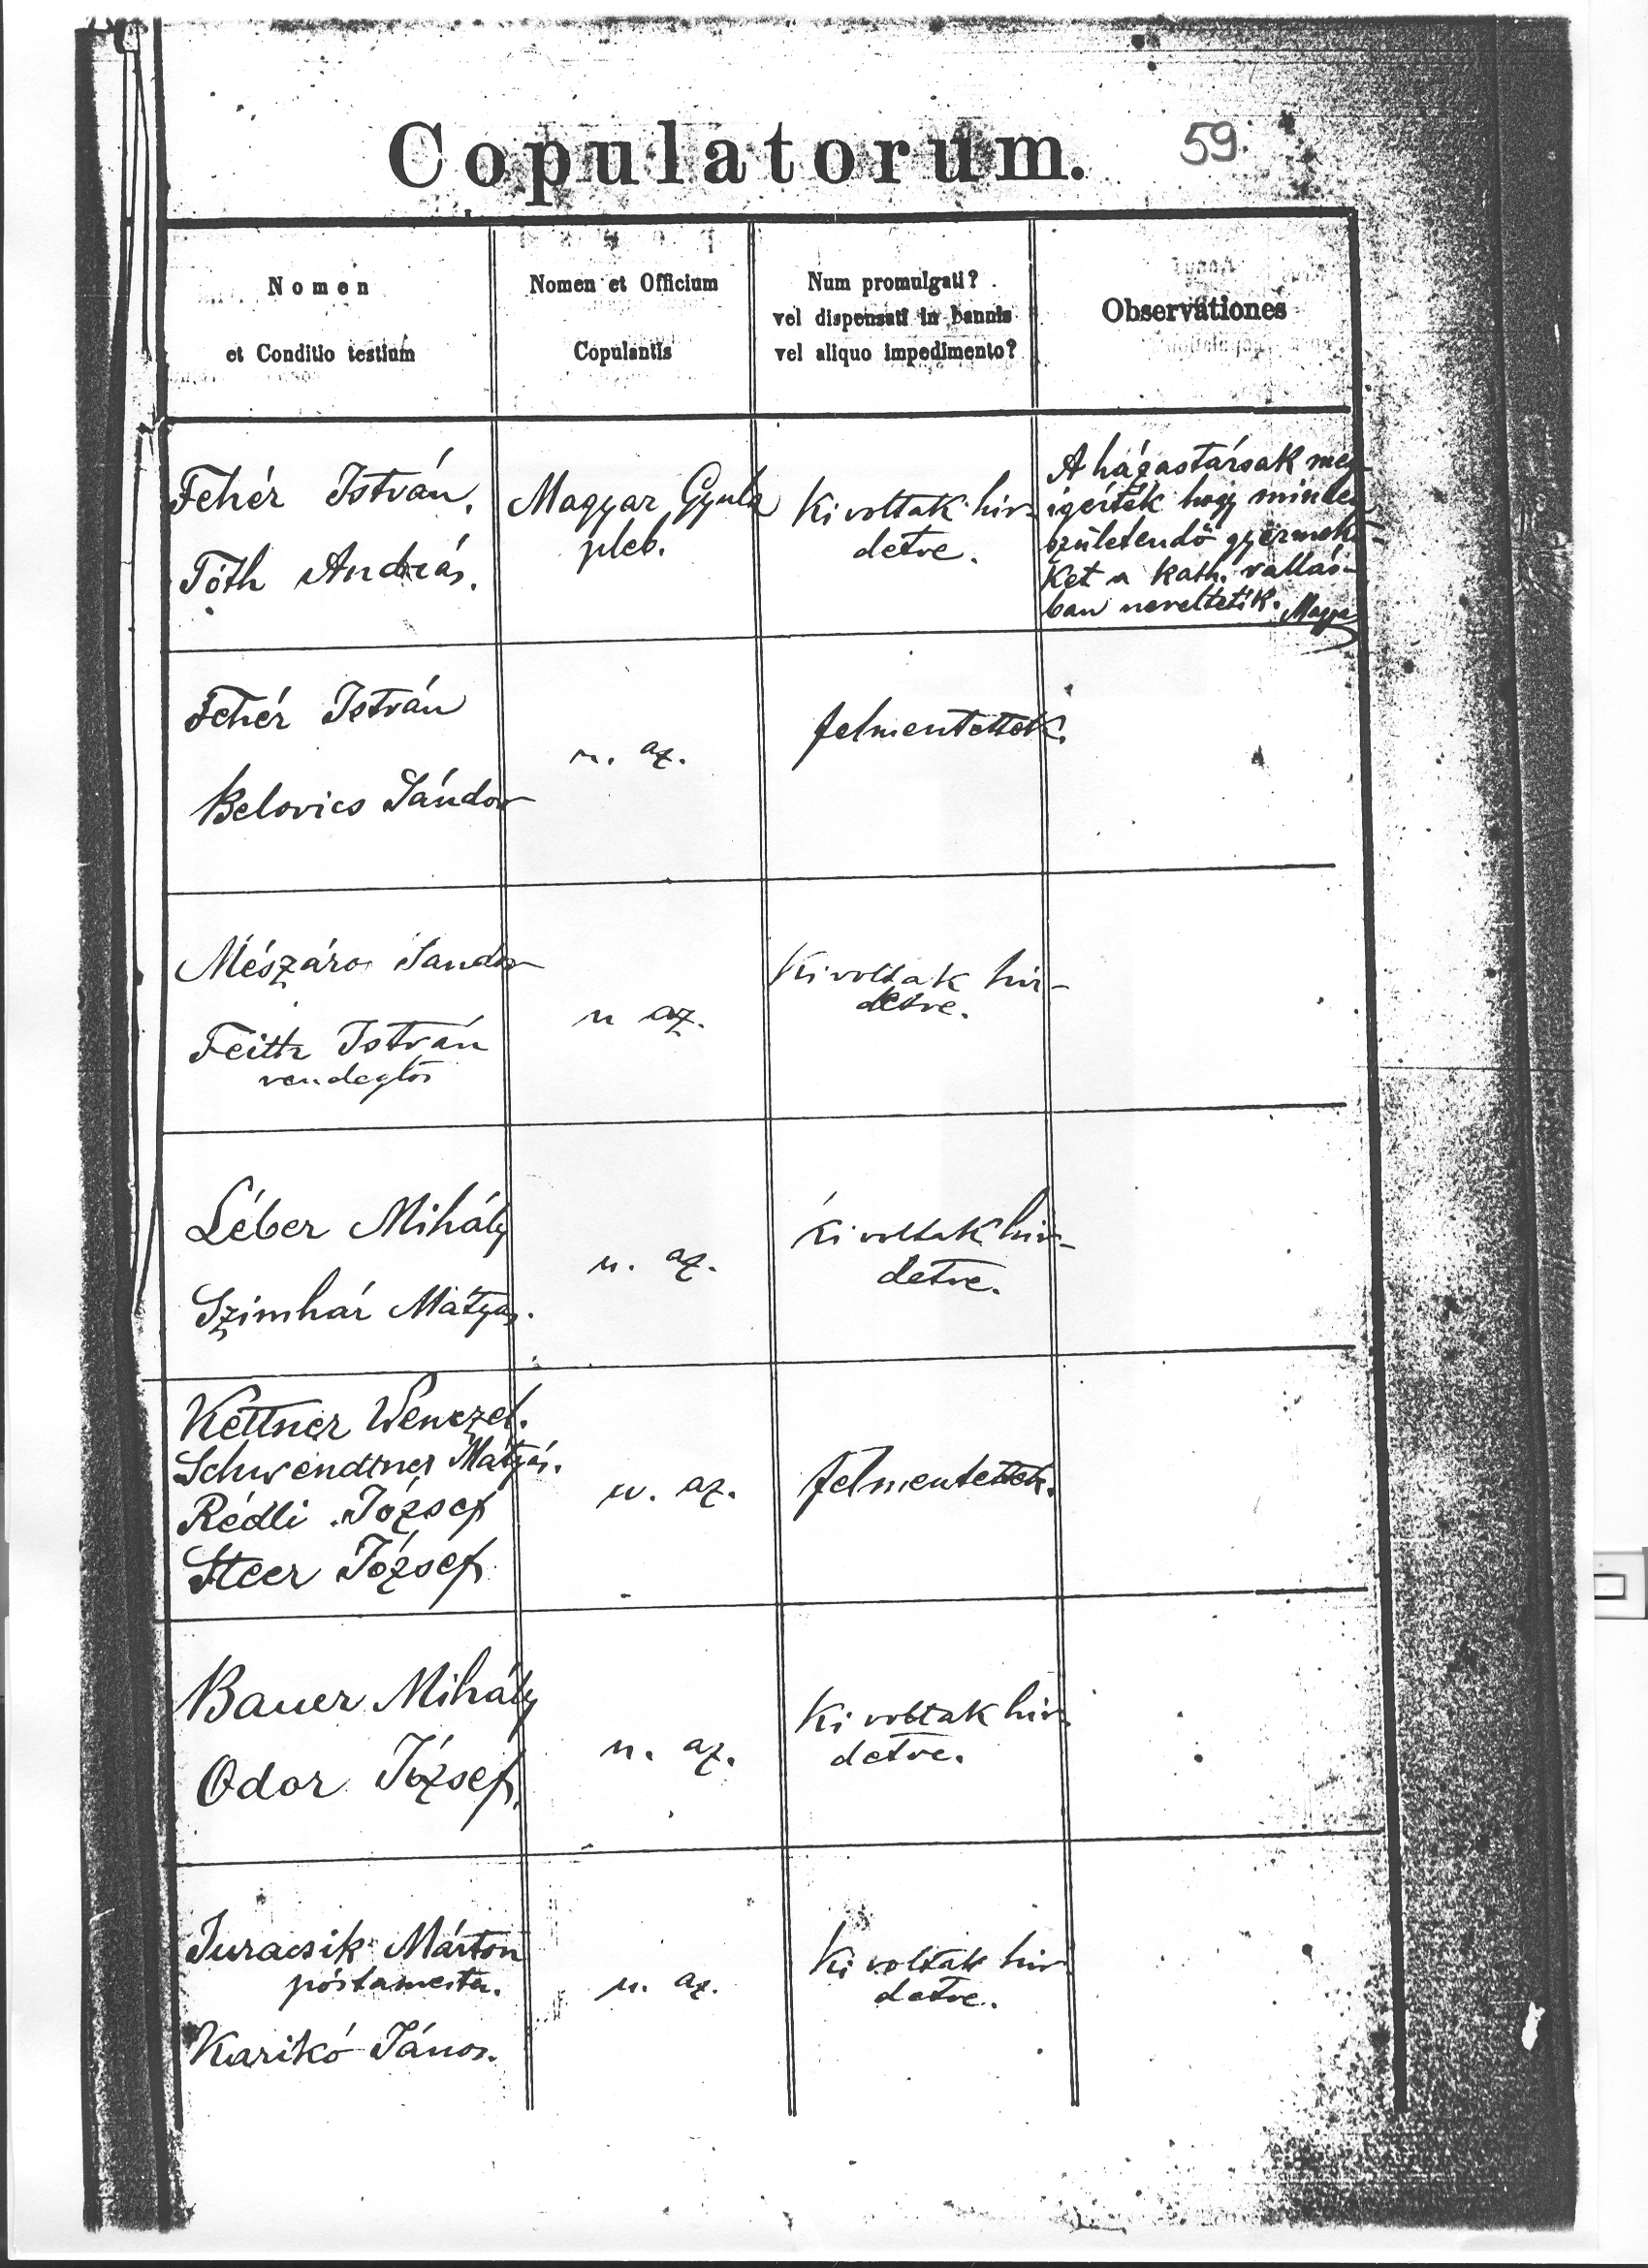 Copulatorum. 59.
Nomen
et Conditio testium
Nomen et Officium
Copulantis
Num promulgati?
vel dispensati in bannis
vel aliquo impedimento?
Observationes
Fehér István.
Tóth András.
Magyar Gyula
pleb.
Ki voltak hir-
detve.
A házastársak meg-
igérték hogy minden
születendő gyermekü-
ket a kath. vallás-
ban neveltetik. Magyar
Fehér István
Belovics Sándor
u. az.
felmentettek.
Mészáros Sandor
Feith István
vendeglős
u az.
Ki voltak hir-
detve.
Léber Mihály
Szimhár Mátyás.
u. az.
Ki voltak hir-
detve.
Kettner Wenczel.
Schwendtner Mátyás.
Rédli József
Steer József
u. az.
felmentettek.
Bauer Mihály
Odor József.
u. az.
Ki voltak hir-
detve.
Juracsik Márton
póstamester.
Karikó János.
u. az.
Ki voltak hir-
detve.